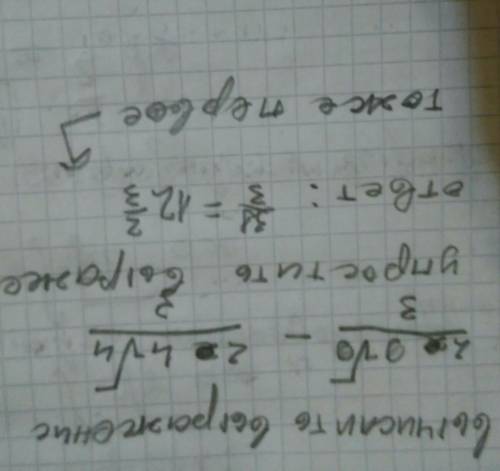 вычислить выражение
2 9√9 / 3 − 2 4√4 / 3
упростить выраже
ответ: 38/3 = 12 2/3
тоже первое